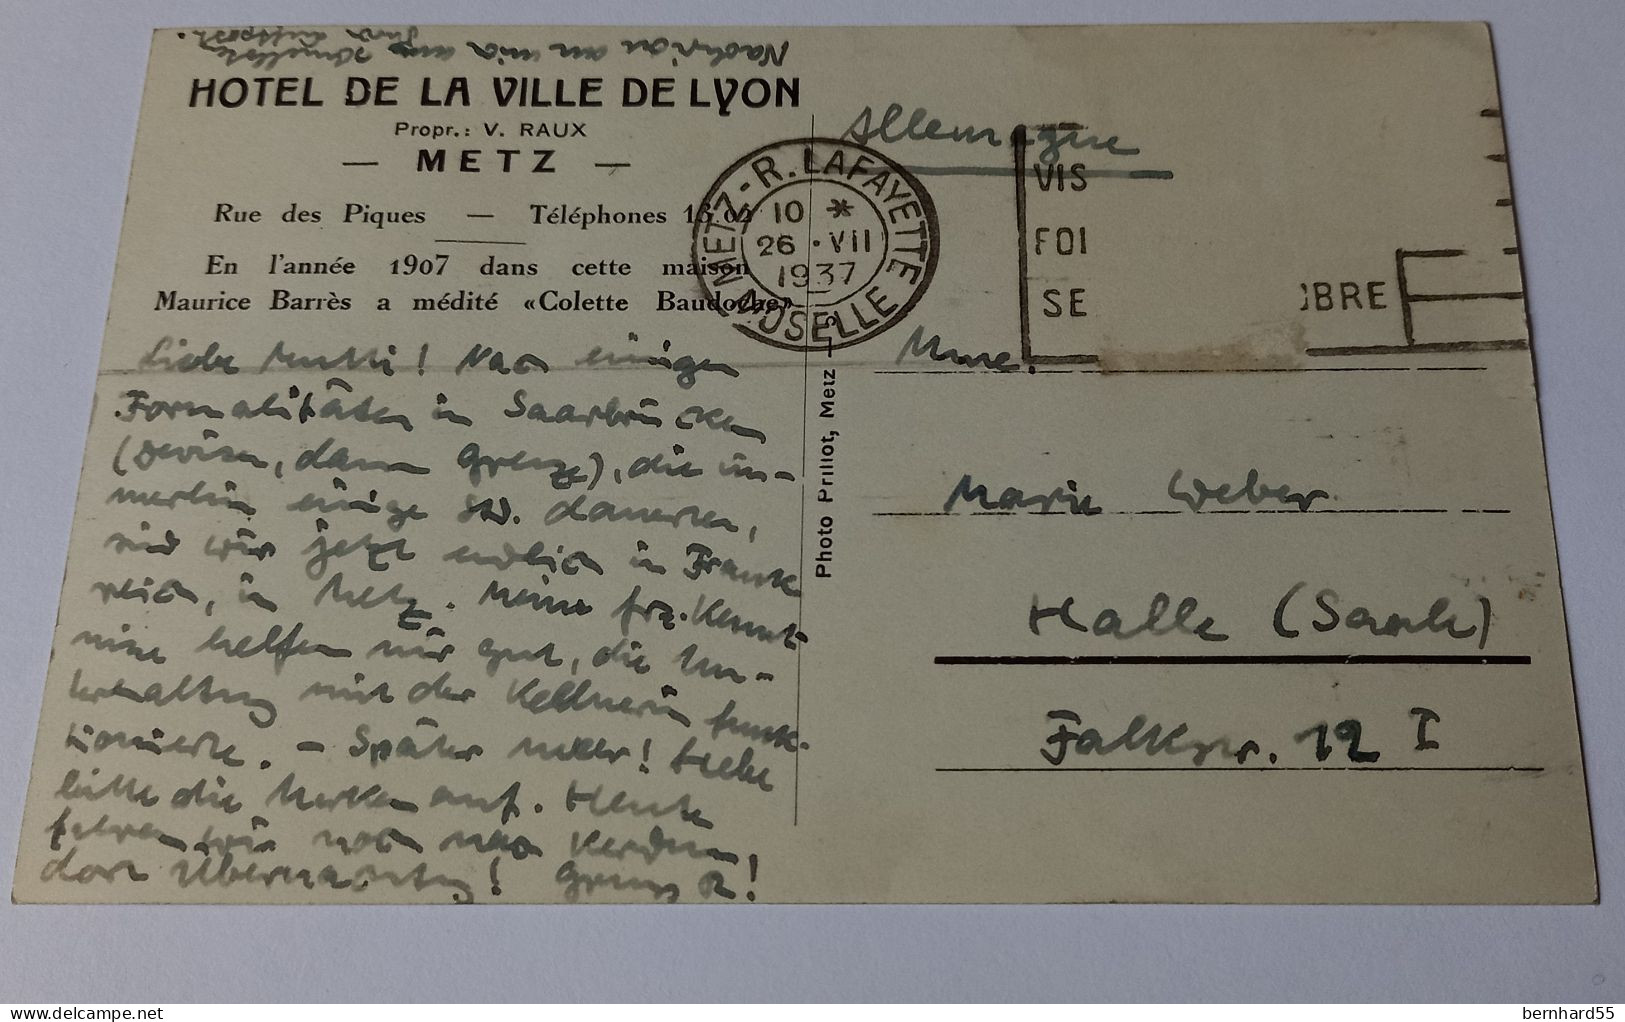 Nachricht an mich
HOTEL DE LA VILLE DE LYON
Propr.: V. RAUX
— METZ —
Rue des Piques — Téléphones 13.02
En l'année 1907 dans cette maison
Maurice Barrès a médité «Colette Baudoche»
Liebe Mutti! Nach einigen
Formalitäten in Saarbrücken
(Devisen, dann Grenze), die im-
merhin einige Std. dauerten,
sind wir jetzt endlich in Frank
reich, in Metz. Meine frz. Kennt
nisse helfen mir gut, die Un-
terhaltung mit der Kellnerin funk-
tionierte. – Später mehr! Hebe
bitte die Marken auf. Heute
fahren wir noch nach Verdun!
dort Übernachtung! Gruss
Photo Prillot, Metz
METZ-R. LAFAYETTE
10 *
26 • VII
1937
MOSELLE
Allemagne
VIS
FOI
SE
OBRE
Mme.
Marie Weber
Halle (Saale)
Falkstr. 12 I
bernhard55